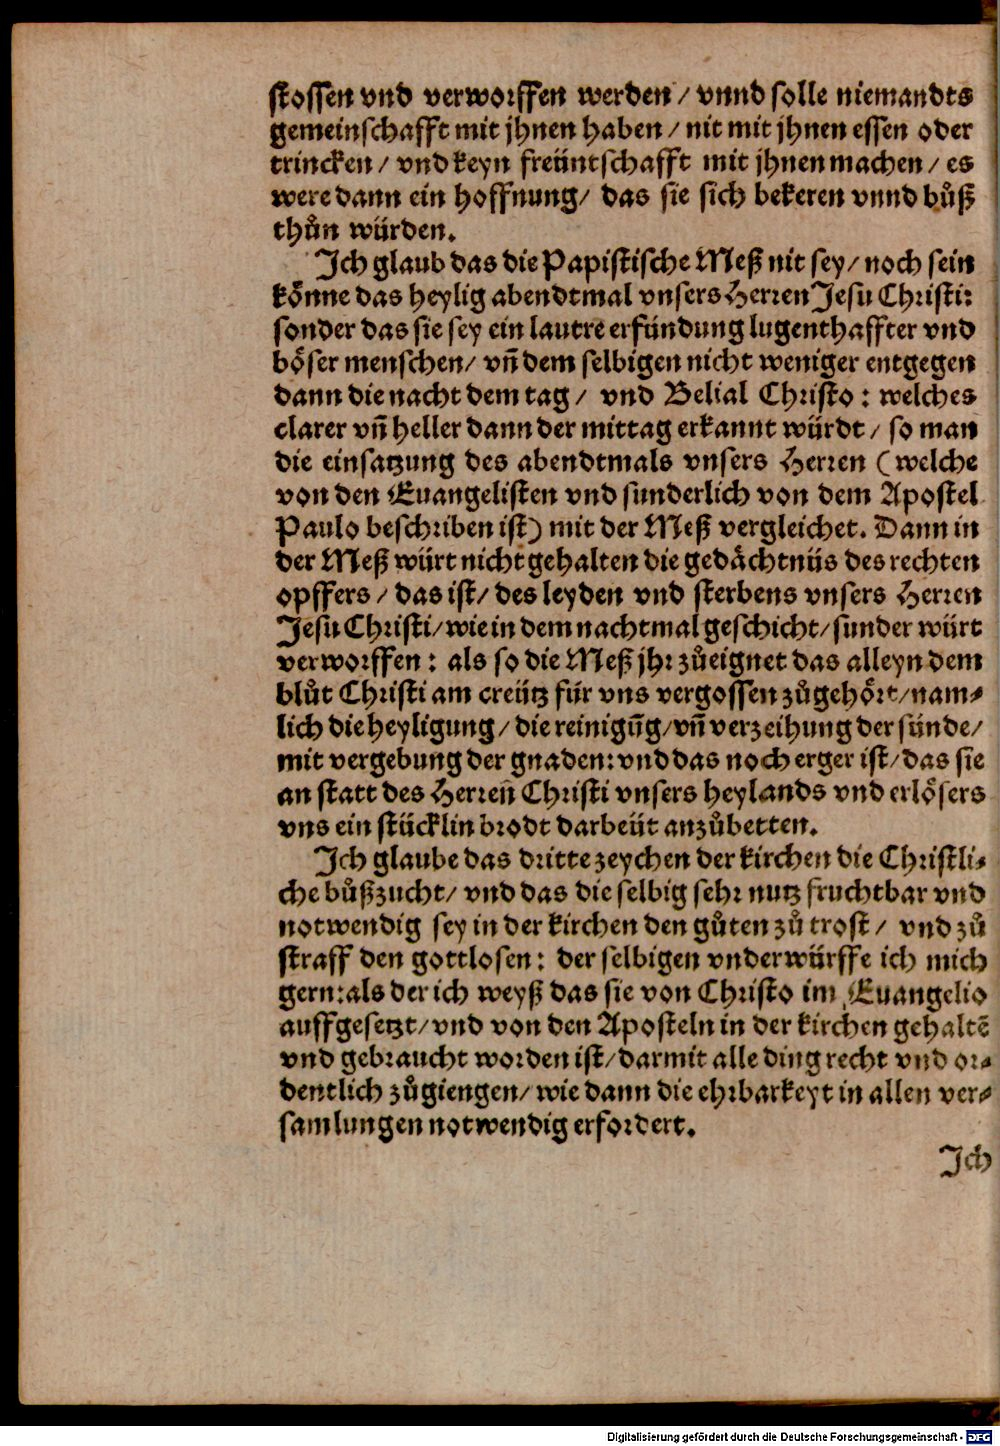 stossen vnd verworffen werden / vnnd solle niemandts
gemeinschafft mit jhnen haben / nit mit jhnen essen oder
trincken / vnd keyn freüntschafft mit jhnen machen / es
were dann ein hoffnung / das sie sich bekeren vnnd bůß
thůn würden.
Ich glaub das die Papistische Meß nit sey / noch sein
koͤnne das heylig abendtmal vnsers Herren Jesu Christi:
sonder das sie sey ein lautre erfündung lugenthaffter vnd
boͤser menschen / vñ dem selbigen nicht weniger entgegen
dann die nacht dem tag / vnd Belial Christo : welches
clarer vñ heller dann der mittag erkannt würdt / so man
die einsatzung des abendtmals vnsers Herren (welche
von den Euangelisten vnd sunderlich von dem Apostel
Paulo beschriben ist) mit der Meß vergleichet. Dann in
der Meß würt nicht gehalten die gedaͤchtnüs des rechten
opffers / das ist / des leyden vnd sterbens vnsers Herren
Jesu Christi / wie in dem nachtmal geschicht / sunder würt
verworffen : als so die Meß jhr zůeignet das alleyn dem
blůt Christi am creütz für vns vergossen zůgehoͤrt / nam⸗
lich die heyligung / die reinigũg / vñ verzeihung der sünde /
mit vergebung der gnaden: vnd das noch erger ist / das sie
an statt des Herreñ Christi vnsers heylands vnd erloͤsers
vns ein stücklin brodt darbeüt anzůbetten.
Ich glaube das dritte zeychen der kirchen die Christli⸗
che bůßzucht / vnd das die selbig sehr nutz fruchtbar vnd
notwendig sey in der kirchen den gůten zů trost / vnd zů
straff den gottlosen : der selbigen vnderwürffe ich mich
gern: als der ich weyß das sie von Christo im Euangelio
auffgesetzt / vnd von den Aposteln in der kirchen gehaltẽ
vnd gebraucht worden ist / darmit alle ding recht vnd or⸗
dentlich zůgiengen / wie dann die ehrbarkeyt in allen ver⸗
samlungen notwendig erfordert.
Ich
Digitalisierung gefördert durch die Deutsche Forschungsgemeinschaft - DFG